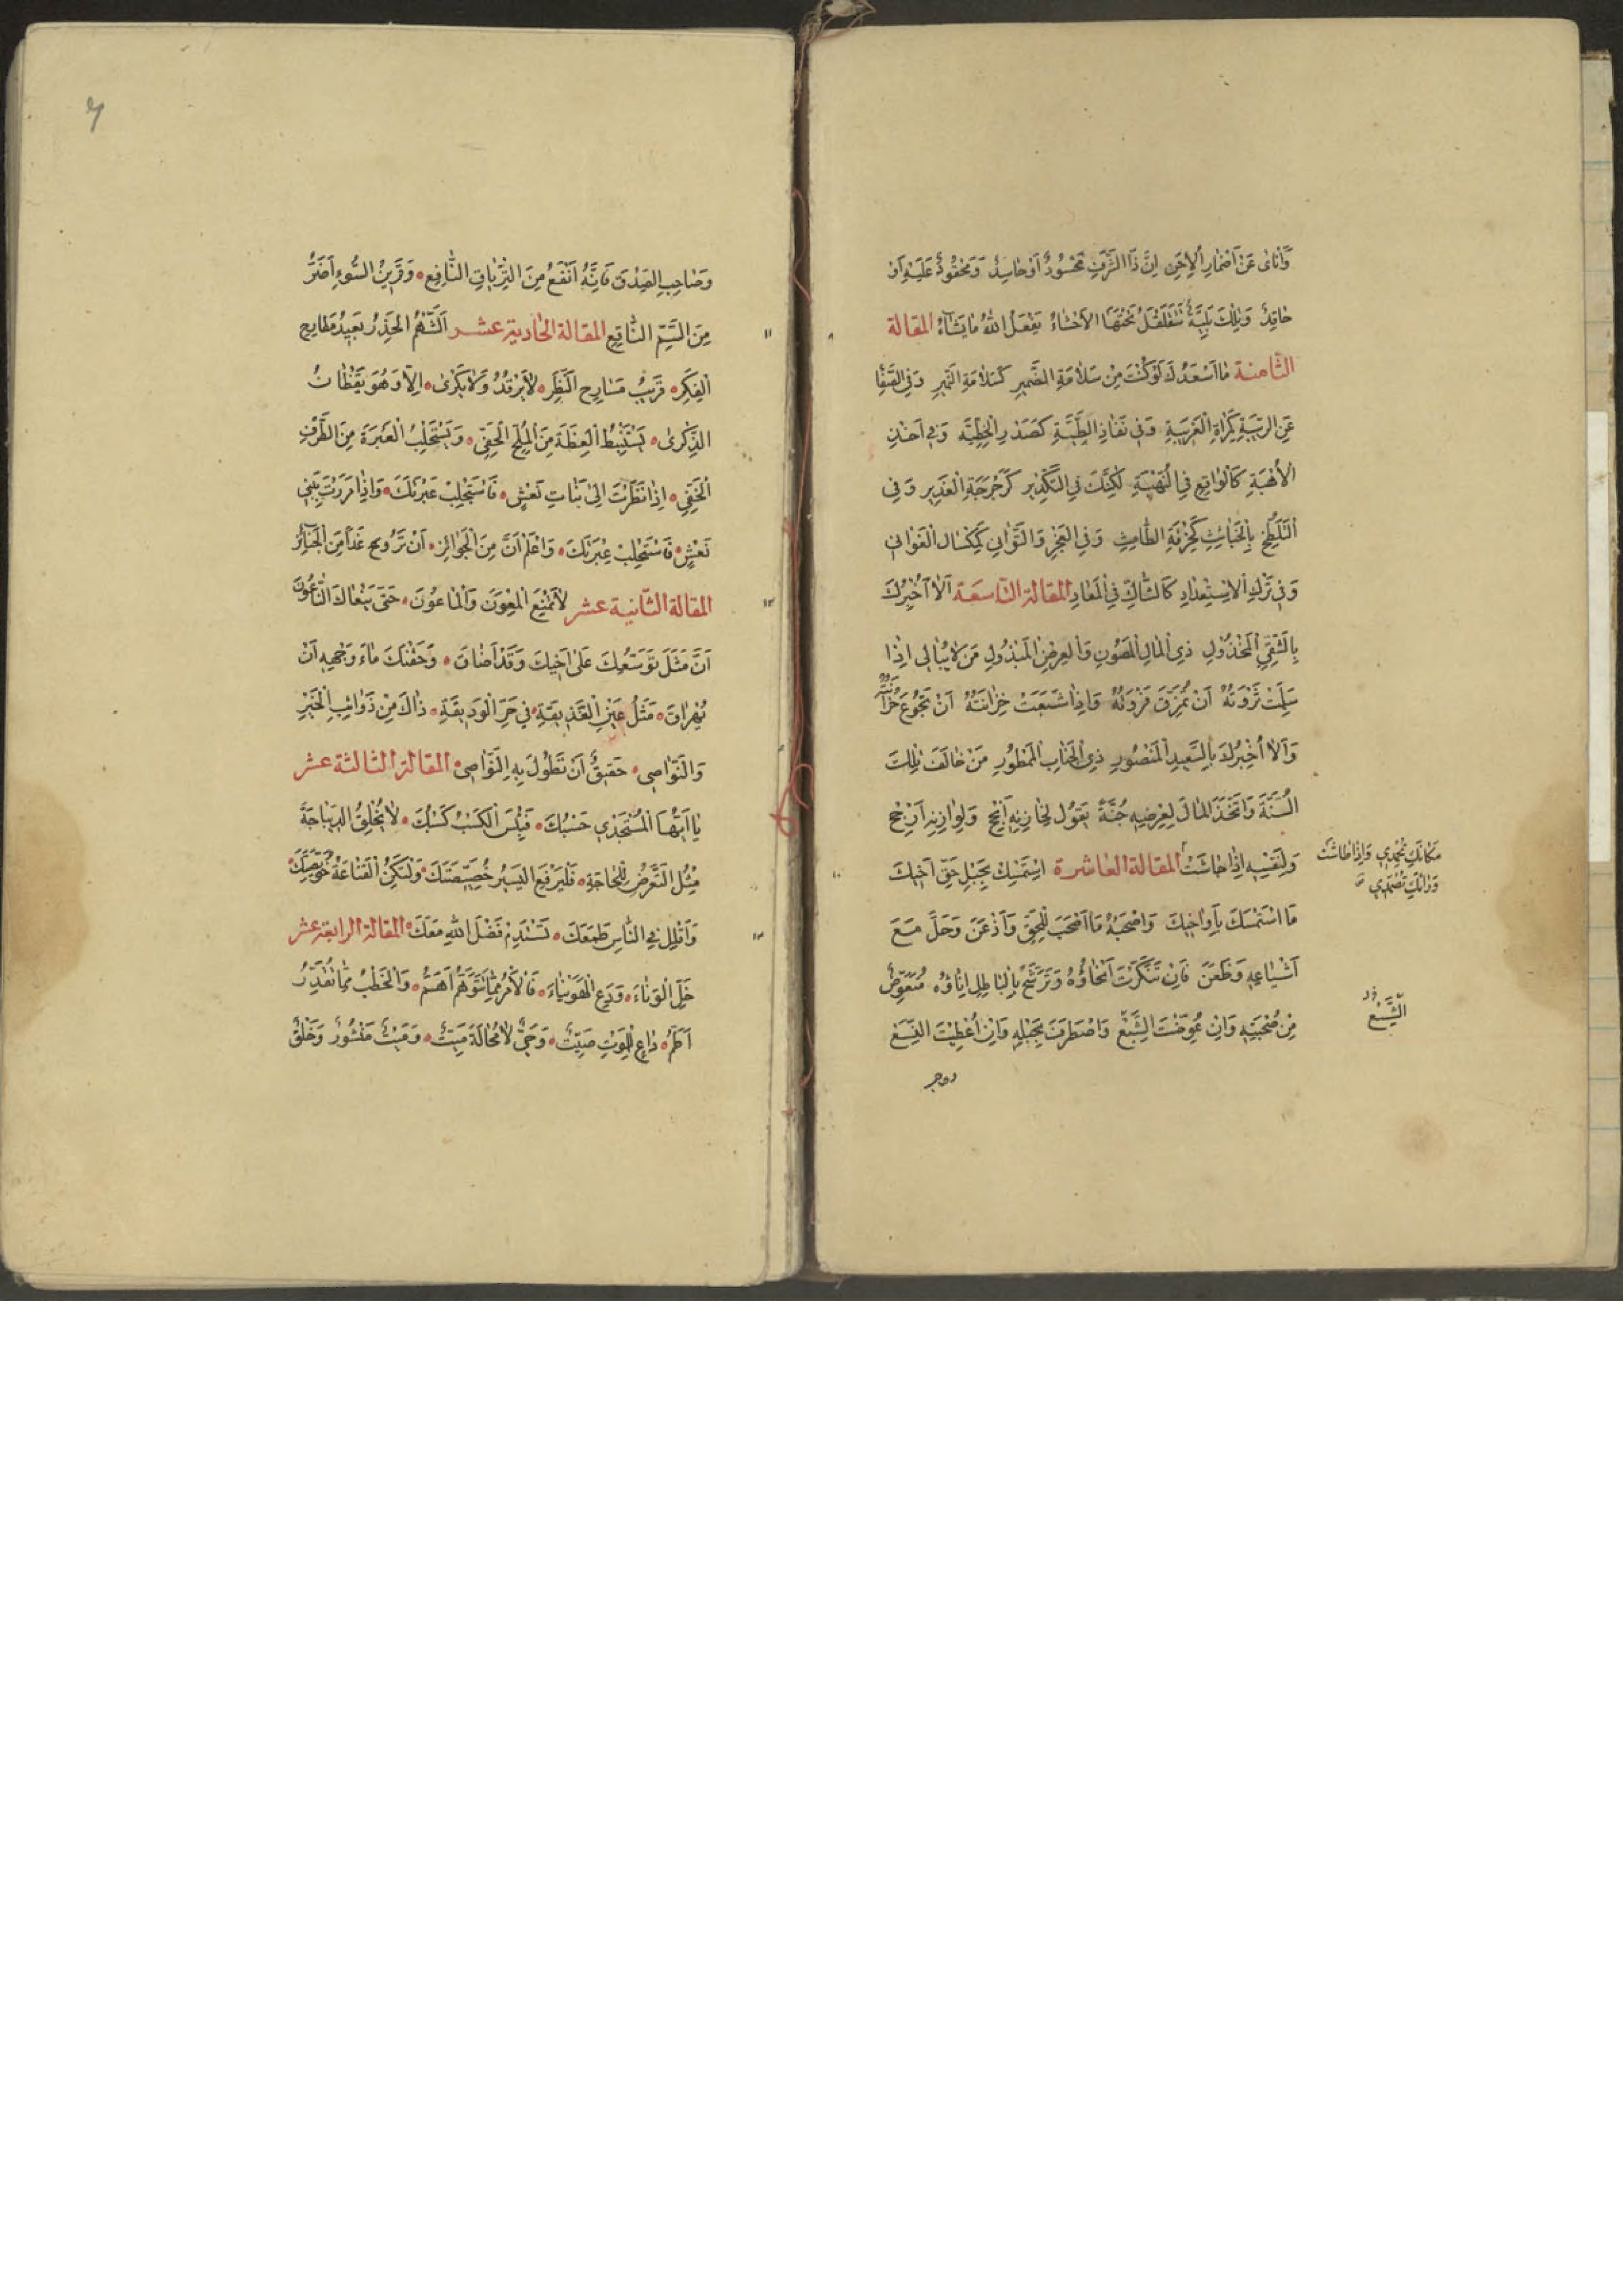 وَأَنْأَى عَنْ اَضْمَارِ الْاِحَنِ اِنَّ ذَا الشَّرَفِ مَحْسُودٌ اَوْ حَاسِدٌ وَمَحْقُودٌ عَلَيْهِ اَوْ
حَاقِدٌ وَتِلْكَ بَلِيَّةٌ تَتَقَلْقَلُ تَحْتَهَا الْاَحْشَاءُ يَفْعَلُ اللّٰهُ مَا يَشَآءُ المقالة
الثامنة مَا اَسْعَدَكَ لَوْ كُنْتَ مِنْ سَلَامَةِ الضَّمِيرِ كَسَلَامَةِ النَّمِيرِ وَفِي الصَّفَا
عَنِ الرِّيبَةِ كَمِرْاٰةِ الْغَرِيبَةِ وَفِي نَفَاذِ الطِّيَّةِ كَصَدْرِ الْخَطِّيَّه وَفِي اَخْذِ
الْاُهْبَةِ كَالْوَاقِعِ فِي النَّهْبَةِ لٰكِنَّكَ فِي التَّكْدِيرِ كَرَجْرَجَةِ الْغَدِيرِ وَفِي
التَّلَطُّخِ بِالْخَبَائِثِ كَخِرْقَةِ الطَّامِثِ وَفِي الْعَجْزِ وَالتَّوَانِي كَمِكْسَالِ الْغَوَانِي
وَفِي تَرْكِ الْاِسْتِعْدَادِ كَالشَّاكِّ فِي الْمَعَادِ المقالة التاسعة اَلَا اُخْبِرُكَ
بِالشَّقِيِّ الْمَخْذُولِ ذِي الْمَالِ الْمَصُونِ وَالْعِرْضِ الْمَبْذُولِ مَنْ لَا يُبَالِي اِذَا
سَلِمَتْ ثَرْوَتُهُ اَنْ تُمَزَّقَ فَرْوَتُهُ وَاِذَا شَبِعَتْ خِزَانَتُهُ اَنْ تَجُوعَ حُزَانَتُهُ
وَاَلَا اُخْبِرُكَ بِالسَّعِيدِ الْمَنْصُورِ ذِي الْجَنَابِ الْمَمْطُورِ مَنْ خَالَفَ تِلْكَ
السُّنَّةَ وَاتَّخَذَ الْمَالَ لِعِرْضِهِ جُنَّةً يَقُولُ لِخَازِنِهِ اَنْجِحْ وَلِوَازِنِهِ اَرْجِحْ
وَلِنَفْسِهِ اِذَا جَاشَتْ المقالة العاشرة اِسْتَمْسِكْ بِحَبْلِ حَقِّ اَخِيكَ
مَكَانَكِ تُحْمَدِي وَاِذَا طَاشَتْ
وَرَائَكِ تُصْمَدِي
مَا اسْتَمْسَكَ بِاَوَاخِيكَ وَاصْحَبْهُ مَا اَصْحَبَ لِلْحَقِّ وَاَذْعَنَ وَحَلَّ مَعَ
اَشْيَاعِهِ وَظَعَنَ فَاِنْ تَنَكَّرَتْ اَنْحَاؤُهُ وَتَرَشَّحَ بِالْبَاطِلِ اِنَاؤُهُ فَتَعَوَّضْ
مِنْ صُحْبَتِهِ وَاِنْ عُوِّضْتَ الشِّسْعَ وَاصْطَرِفْ بِحَبْلِهِ وَاِنْ اُعْطِيتَ النِّسْعَ
الشِّسْعُ
وَصَاحِبِ الصِّدْقِ فَاِنَّهُ اَنْفَعُ مِنَ التِّرْيَاقِ النَّافِعِ وَقَرِينُ السُّوءِ اَضَرُّ
مِنَ السَّمِّ النَّاقِعِ المقالة الحادية عشر اَلشَّهْمُ الْحَذِرُ بَعِيدُ مَطَارِحِ
الْفِكَرِ قَرِيبُ مَسَارِحِ النَّظَرِ لَا يَرْقُدُ وَلَا يَكْرَى اِلَّا وَهُوَ يَقْظَانُ
الذِّكْرَى يَسْتَنْبِطُ الْعِظَةَ مِنَ الْمُلَحِ الْخَفِيِّ وَيَسْتَجْلِبُ الْعَبْرَةَ مِنَ الطَّرْفِ
الْخَفِيِّ اِذَا نَظَرْتَ اِلَى بَنَاتِ نَعْشٍ فَاسْتَجْلِبْ عَبْرَتَكَ وَاِذَا مَرَرْتَ بِبَنِي
نَعْشٍ فَاسْتَحْلِبْ عِبْرَتَكَ وَاعْلَمْ اَنَّ مِنَ الْجَوَائِزِ اَنْ تَرُوحَ غَدًا مِنَ الْجَنَائِزِ
المقالة الثانية عشر لَا تَمْنَعِ الْمَعُونَ وَالْمَاعُونَ حَتَّى يَنْعَاكَ النَّاعُونَ
اَنَّ مَثَلَ تَوَسُّعِكَ عَلَى اَخِيكَ وَقَدْ اَضَاقَ وَحَقْنِكَ مَاءَ وَجْهِهِ اَنْ
يُهْرَاقَ مَثَلُ عَيْنِ الْغَدِيقَةِ فِي حَرِّ الْوَدِيقَةِ ذَاكَ مِنْ ذَوَائِبِ الْخَيْرِ
وَالنَّوَاصِي حَقِيقٌ اَنْ تَطُولَ بِهِ النَّوَاصِي المقالة الثالثة عشر
يَا اَيُّهَا الْمُسْتَجْدِي حَسْبُكَ فَبِئْسَ الْكَسْبُ كَسْبُكَ لَا يُخْلِقُ الدِّيبَاجَةَ
مِثْلُ التَّعَرُّضِ لِلْحَاجَةِ فَلْيَرْقَعِ الْيَسِيرُ خَصِيصَتَكَ وَلْتَكُنِ الْقَنَاعَةُ خُوَيْصَتَكَ
وَاَقْلِلْ فِي النَّاسِ طَمَعَكَ تَسْتَدِمْ فَضْلَ اللّٰهِ مَعَكَ المقالة الرابعة عشر
خَلِّ الْوَنَاءَ وَدَعِ الْهُوَيْنَاءَ فَالْاَمْرُ مِمَّا تَتَوَهَّمُ اَهَمُّ وَالْخَطْبُ مِمَّا تُقَدِّرُ
اَطَمُّ دَاعٍ لِلْمَوْتِ صَيِّتٌ وَحَيٌّ لَا مَحَالَةَ مَيِّتٌ وَمَيْتٌ مَنْشُورٌ وَخَلْقٌ